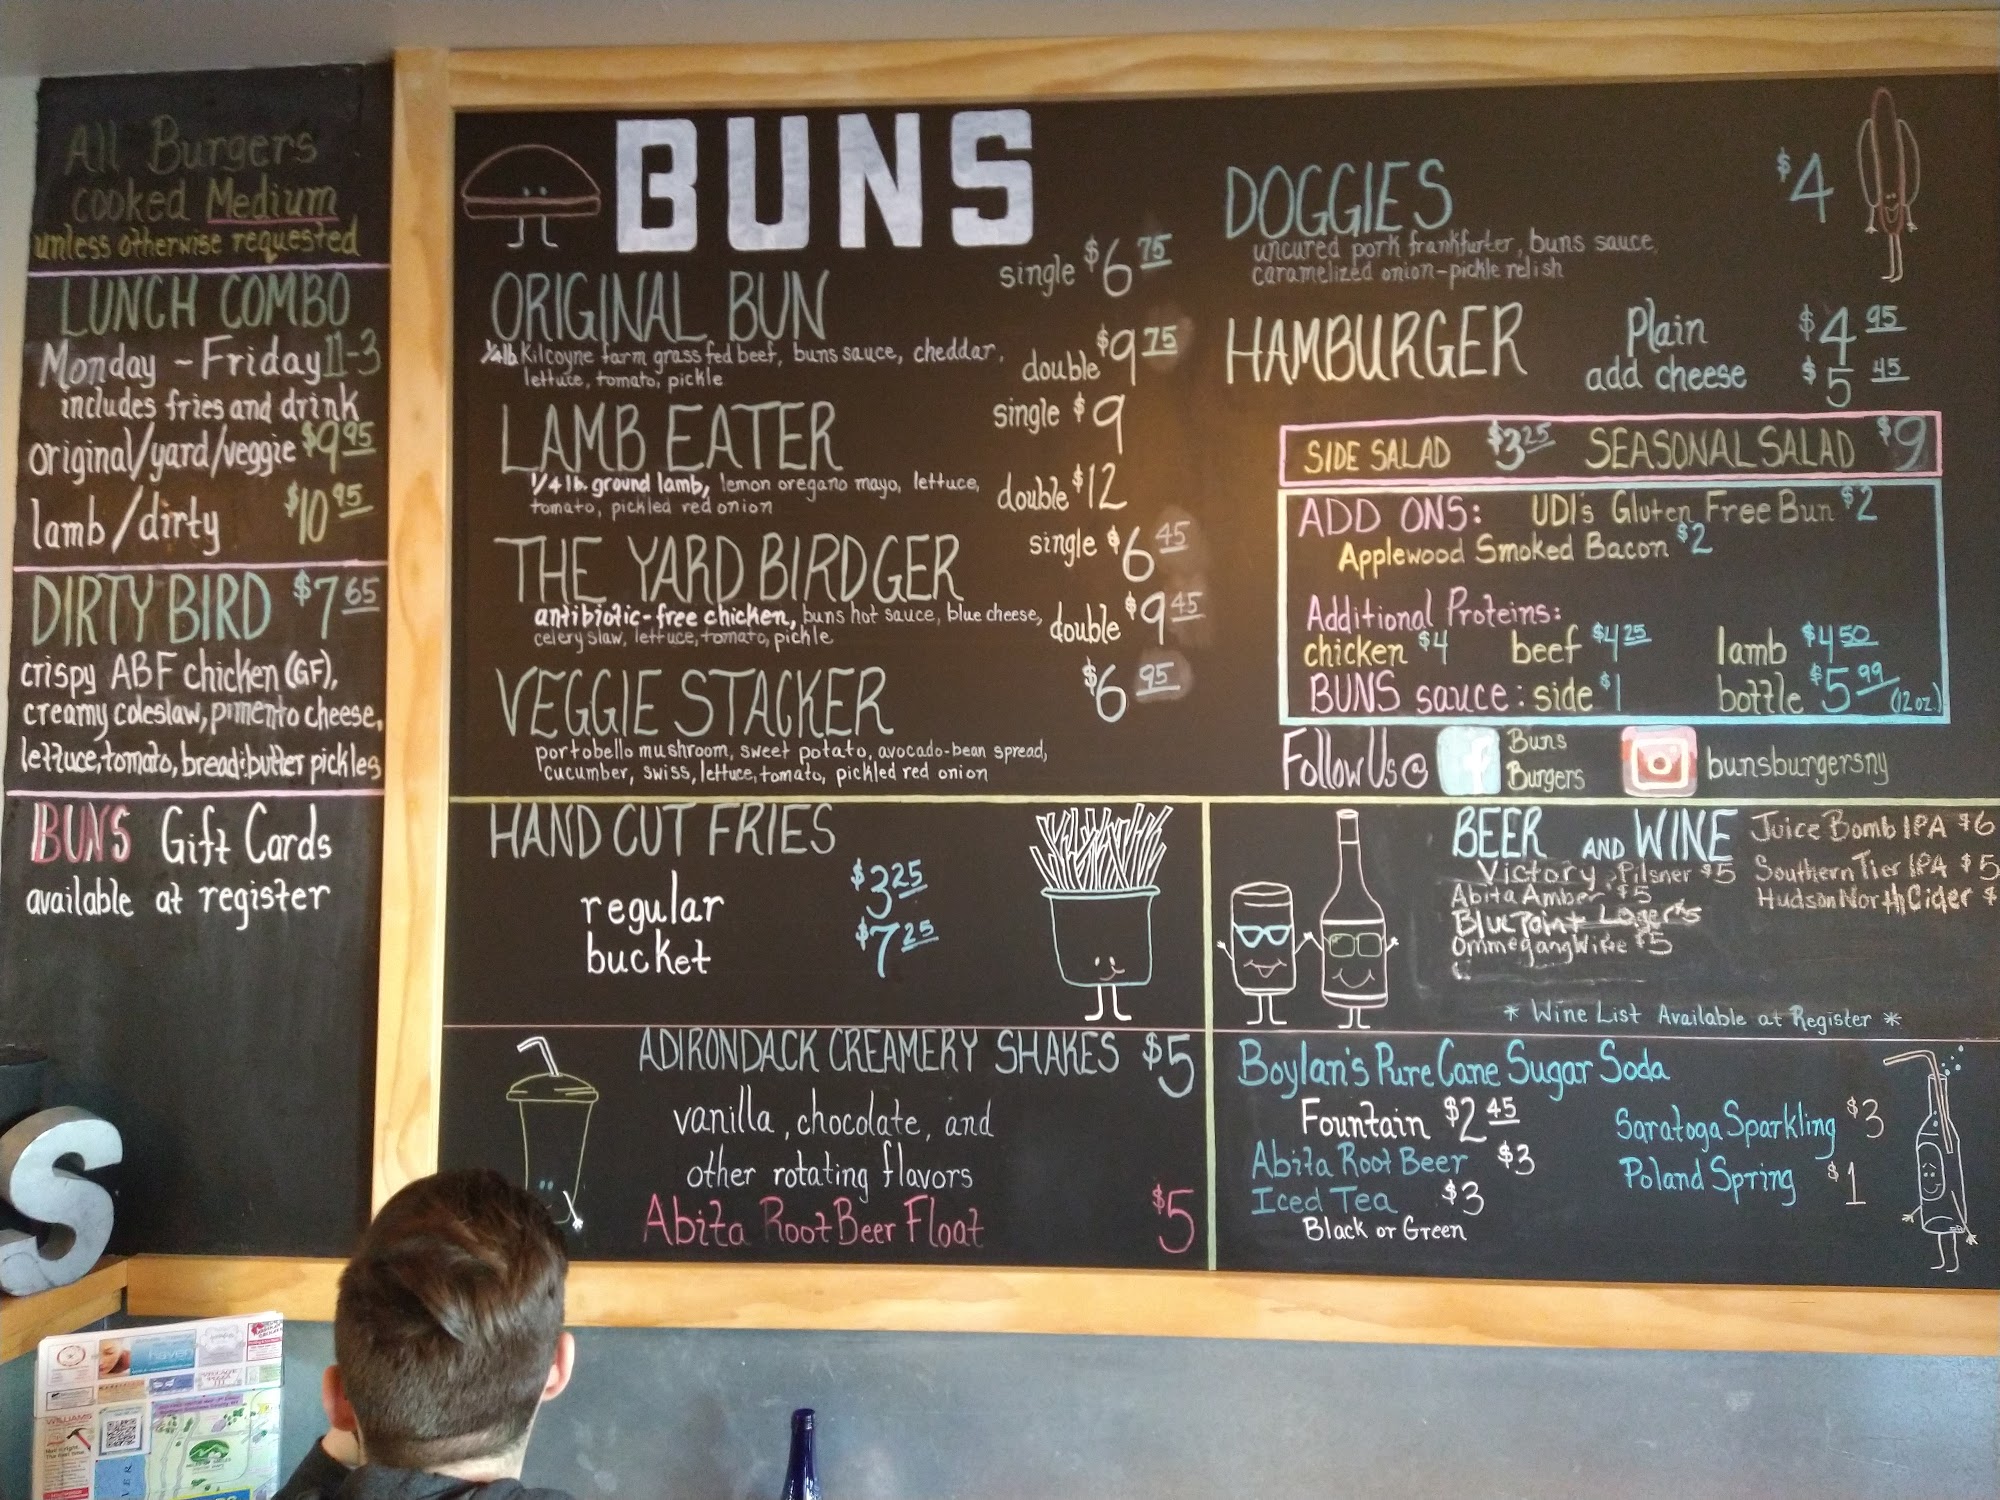 All Burgers
cooked Medium
unless otherwise requested
LUNCH COMBO
Monday ~ Friday 11-3
includes fries and drink
original/yard/veggie $9.95
lamb/dirty $10.95
DIRTY BIRD $7.65
crispy ABF chicken (GF),
creamy coleslaw, pimento cheese,
lettuce, tomato, bread & butter pickles
BUNS Gift Cards
available at register
BUNS
ORIGINAL BUN single $6.75
1/4lb Kilcoyne farm grass fed beef, buns sauce, cheddar,
lettuce, tomato, pickle
double $9.75
LAMB EATER single $9
1/4 lb. ground lamb, lemon oregano mayo, lettuce,
tomato, pickled red onion
double $12
THE YARD BIRDGER single $6.45
antibiotic-free chicken, buns hot sauce, blue cheese,
celery slaw, lettuce, tomato, pickle
double $9.45
VEGGIE STACKER $6.95
portobello mushroom, sweet potato, avocado-bean spread,
cucumber, swiss, lettuce, tomato, pickled red onion
DOGGIES $4
uncured pork frankfurter, buns sauce,
caramelized onion-pickle relish
HAMBURGER Plain $4.95
add cheese $5.45
SIDE SALAD $3.25 SEASONAL SALAD $9
ADD ONS: UDI's Gluten Free Bun $2
Applewood Smoked Bacon $2
Additional Proteins:
chicken $4 beef $4.25 lamb $4.50
BUNS sauce: side $1 bottle $5.99 (12oz.)
Follow Us @ f Buns
Burgers
bunsburgersny
HAND CUT FRIES
regular $3.25
bucket $7.25
BEER AND WINE
Victory Pilsner $5
Abita Amber $5
Blue Point Lager $5
Ommegang Witte $5
Juice Bomb IPA $6
Southern Tier IPA $5
Hudson North Cider $
* Wine List Available at Register *
ADIRONDACK CREAMERY SHAKES $5
vanilla, chocolate, and
other rotating flavors
Abita Root Beer Float $5
Boylan's Pure Cane Sugar Soda
Fountain $2.45
Abita Root Beer $3
Iced Tea $3
Black or Green
Saratoga Sparkling $3
Poland Spring $1
S
haven
WILLIAMS